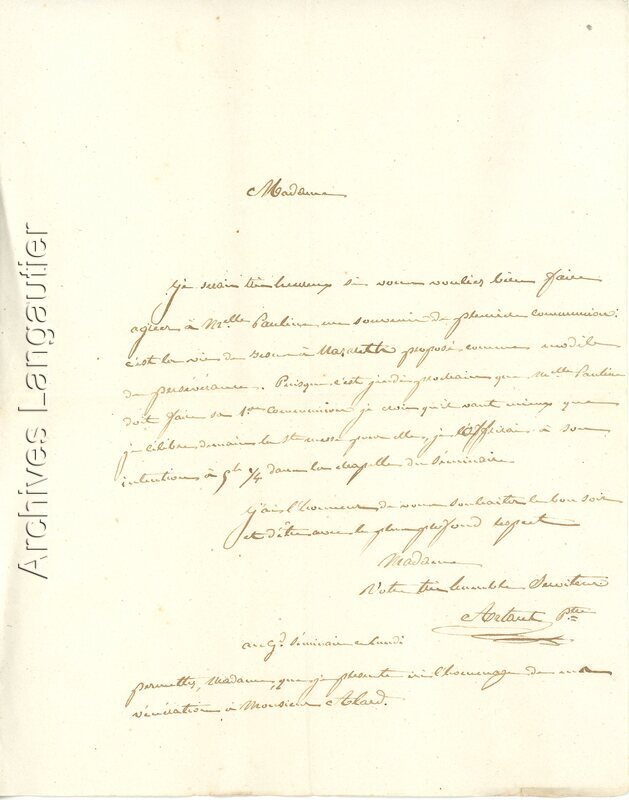 Madame
je serais très heureux si vous vouliez bien faire
agréer à Melle Pauline un souvenir de première communion:
c'est la vie de Jésus à Nazareth proposé comme modèle
de persévérance. Puisque c'est jeudi prochain que Melle Pauline
doit faire sa 1ere Communion je crois qu'il vaut mieux que
je célèbre demain la Ste messe pour elle, je l'offrirai à son
intention à 5h 1/4 dans la chapelle du Séminaire
j'ai l'honneur de vous souhaiter le bon soir
et d'être avec le plus profond respect
Madame
Votre très humble Serviteur
Artaut Ptre
au Gd Séminaire ce lundi
permettez, Madame, que je présente ici l'homenage de ma
vénération à Monsieur Alard.
Archives Langautier